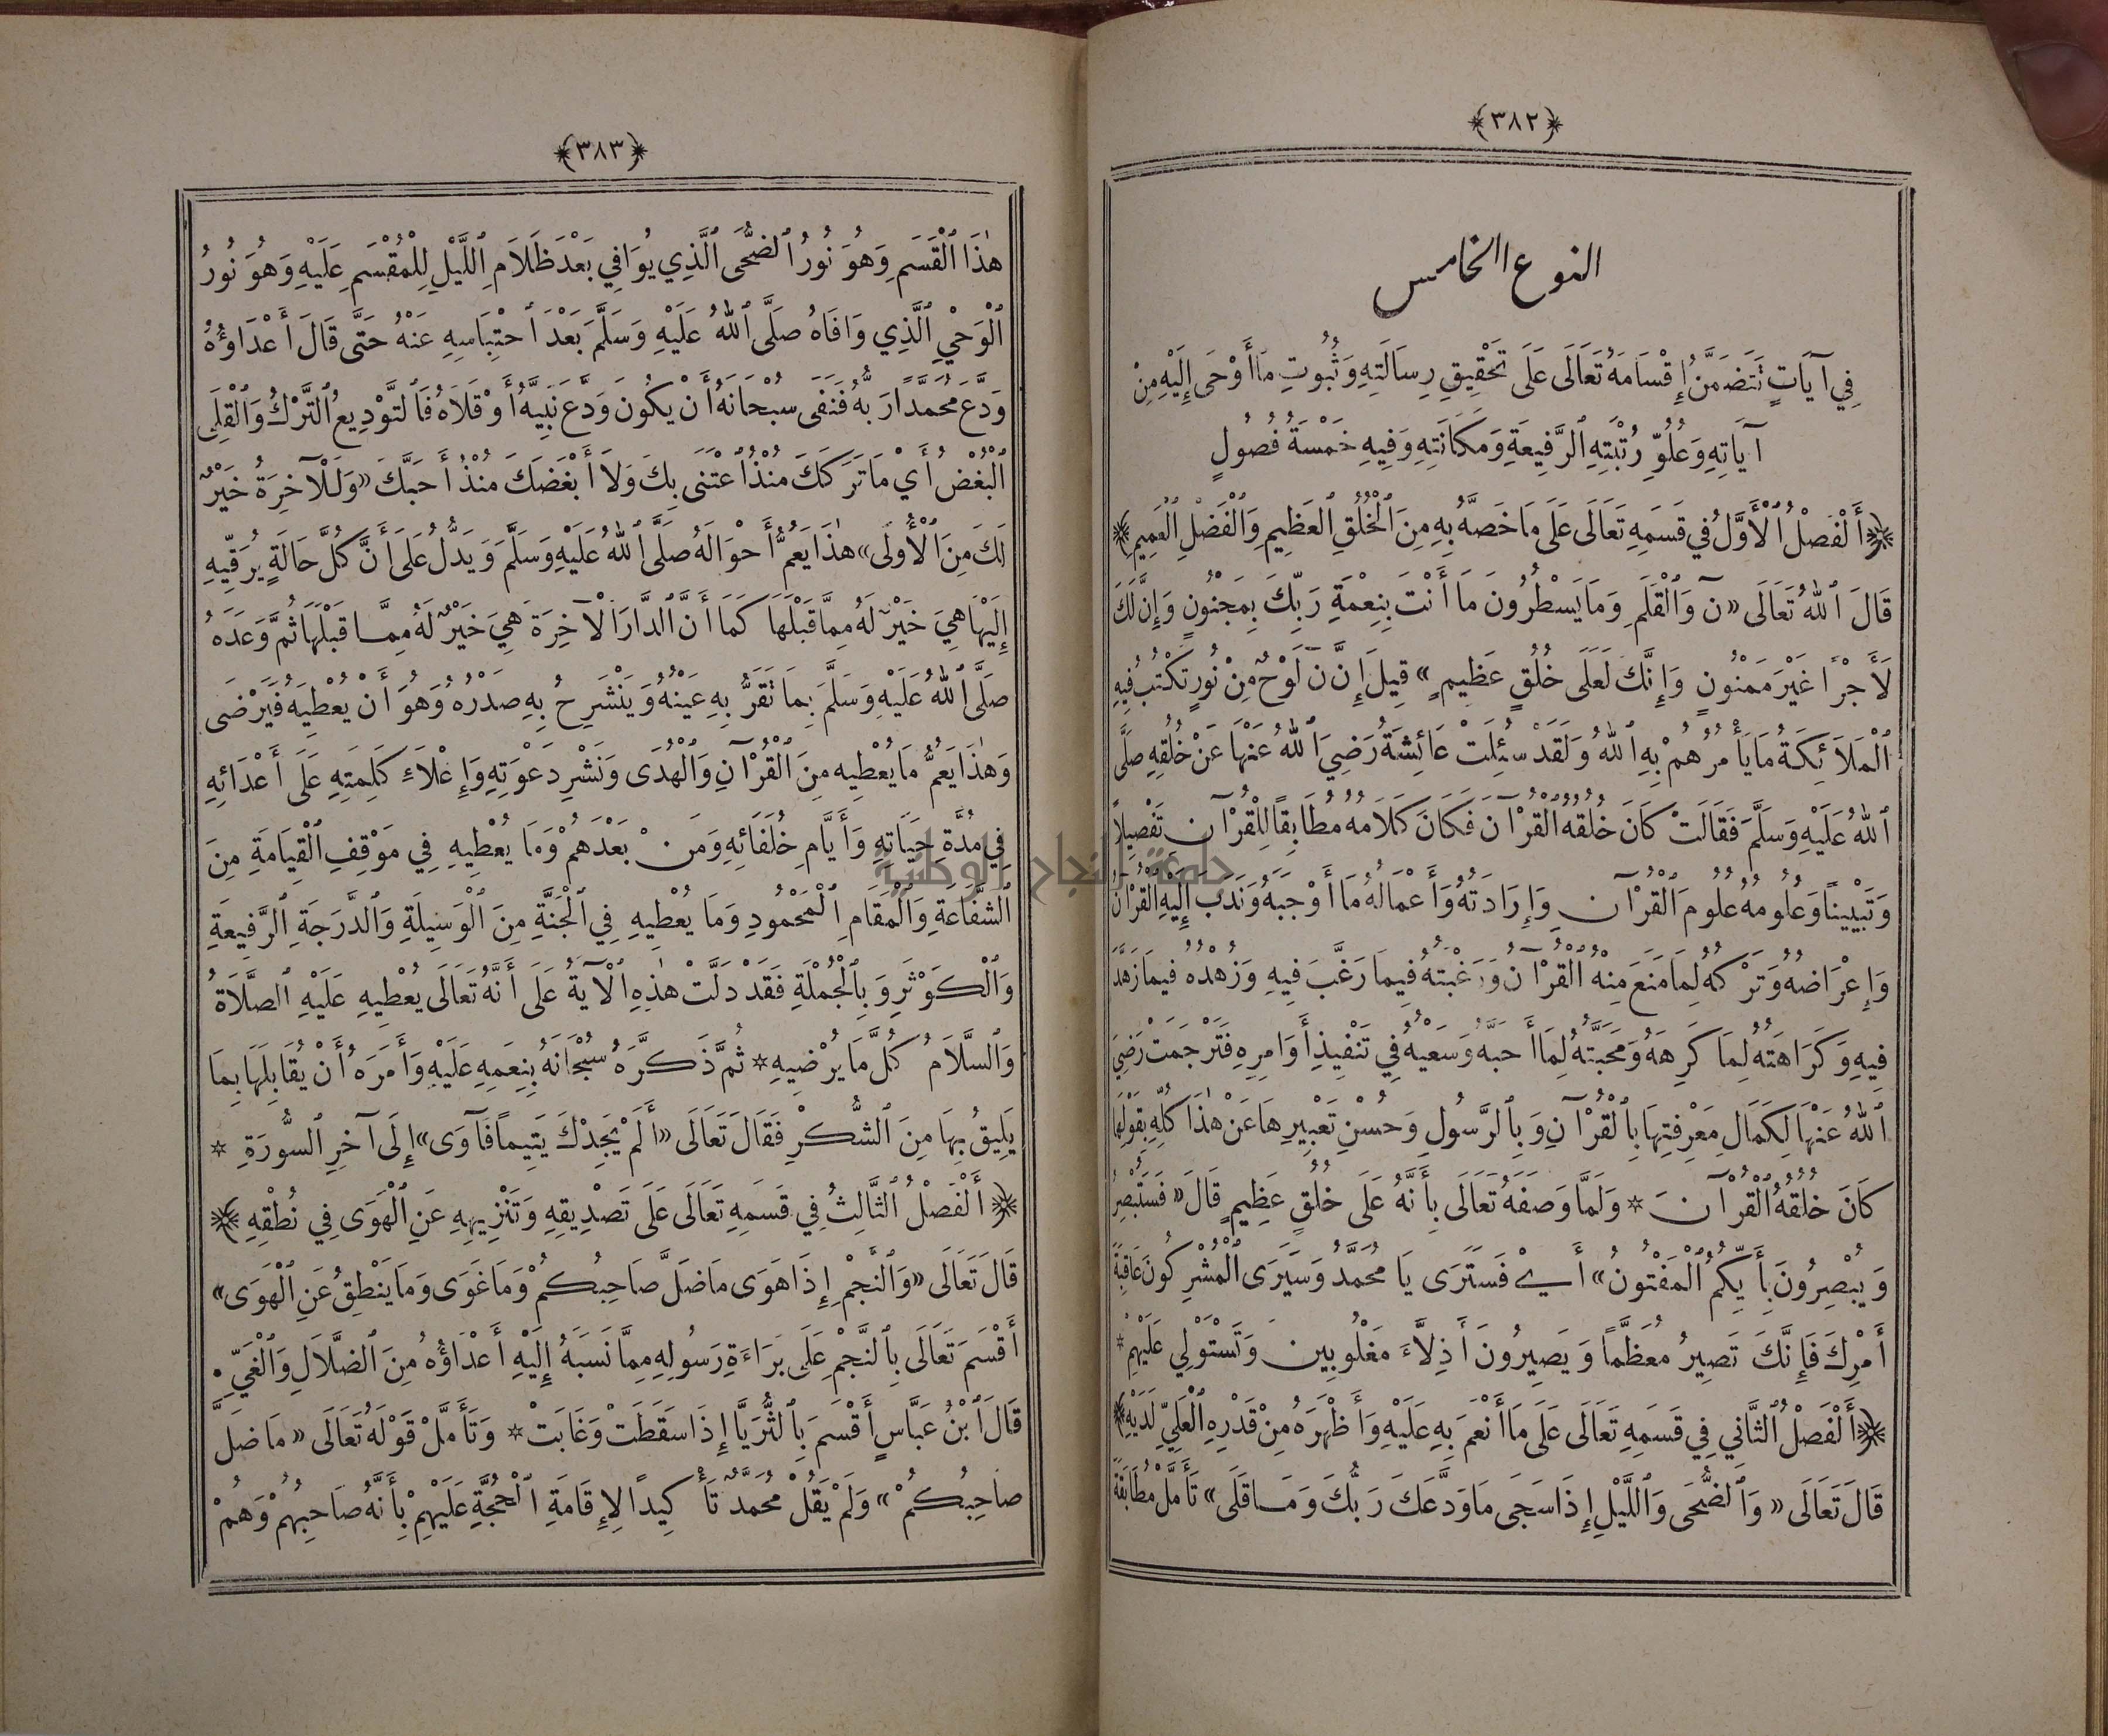 ﴿٣٨٢﴾
النوع الخامس
فِي آيَاتٍ تَتَضَمَّنُ إِقْسَامَهُ تَعَالَى عَلَى تَحْقِيقِ رِسَالَتِهِ وَثُبُوتِ مَا أَوْحَى إِلَيْهِ مِنْ
آيَاتِهِ وَعُلُوِّ رُتْبَتِهِ ٱلرَّفِيعَةِ وَمَكَانَتِهِ وَفِيهِ خَمْسَةُ فُصُولٍ
﴿أَلْفَصْلُ ٱلْأَوَّلُ فِي قَسَمِهِ تَعَالَى عَلَى مَا خَصَّهُ بِهِ مِنَ ٱلْخُلُقِ ٱلعَظِيمِ وَٱلْفَضْلِ ٱلْعَمِيمِ﴾
قَالَ ٱللهُ تَعَالَى «نَ وَٱلْقَلَمِ وَمَا يَسْطُرُونَ مَا أَنْتَ بِنِعْمَةِ رَبِّكَ بِمَجْنُونٍ وَإِنَّ لَكَ
لَأَجْرًا غَيْرَ مَمْنُونٍ وَإِنَّكَ لَعَلَى خُلُقٍ عَظِيمٍ» قِيلَ إِنَّ نَ لَوْحٌ مِنْ نُورٍ تَكْتُبُ فِيهِ
ٱلْمَلَائِكَةُ مَا يَأْمُرُهُمْ بِهِ ٱللهُ وَلَقَدْ سُئِلَتْ عَائِشَةُ رَضِيَ ٱللهُ عَنْهَا عَنْ خُلُقِهِ صَلَّى
ٱللهُ عَلَيْهِ وَسَلَّمَ فَقَالَتْ كَانَ خُلُقُهُ ٱلْقُرْآنَ فَكَانَ كَلَامُهُ مُطَابِقًا لِلْقُرْآنِ تَفْصِيلًا
وَتَبْيِينًا وَعُلُومُهُ عُلُومَ ٱلْقُرْآنِ وَإِرَادَتُهُ وَأَعْمَالُهُ مَا أَوْجَبَهُ وَنَدَبَ إِلَيْهِ ٱلْقُرْآنُ
وَإِعْرَاضُهُ وَتَرْكُهُ لِمَا مَنَعَ مِنْهُ ٱلْقُرْآنُ وَرَغْبَتُهُ فِيمَا رَغَّبَ فِيهِ وَزُهْدُهُ فِيمَا زَهَّدَ
فِيهِ وَكَرَاهَتُهُ لِمَا كَرِهَهُ وَمَحَبَّتُهُ لِمَا أَحَبَّهُ وَسَعْيُهُ فِي تَنْفِيذِ أَوَامِرِهِ فَتَرْجَمَتْ رَضِيَ
ٱللهُ عَنْهَا لِكَمَالِ مَعْرِفَتِهَا بِٱلْقُرْآنِ وَبِٱلرَّسُولِ وَحُسْنِ تَعْبِيرِهَا عَنْ هٰذَا كُلِّهِ بِقَوْلِهَا
كَانَ خُلُقُهُ ٱلْقُرْآنَ * وَلَمَّا وَصَفَهُ تَعَالَى بِأَنَّهُ عَلَى خُلُقٍ عَظِيمٍ قَالَ «فَسَتُبْصِرُ
وَيُبْصِرُونَ بِأَيِّكُمُ ٱلْمَفْتُونُ» أَيْ فَسَتَرَى يَا مُحَمَّدُ وَسَيَرَى ٱلْمُشْرِكُونَ عَاقِبَةَ
أَمْرِكَ فَإِنَّكَ تَصِيرُ مُعَظَّمًا وَيَصِيرُونَ أَذِلَّاءَ مَغْلُوبِينَ وَتَسْتَوْلِي عَلَيْهِمْ *
﴿أَلْفَصْلُ ٱلثَّانِي فِي قَسَمِهِ تَعَالَى عَلَى مَا أَنْعَمَ بِهِ عَلَيْهِ وَأَظْهَرَهُ مِنْ قَدْرِهِ ٱلْعَلِيِّ لَدَيْهِ﴾
قَالَ تَعَالَى «وَٱلضُّحَى وَٱللَّيْلِ إِذَا سَجَى مَا وَدَّعَكَ رَبُّكَ وَمَا قَلَى» تَأَمَّلْ مُطَابَقَةَ
﴿٣٨٣﴾
هٰذَا ٱلْقَسَمِ وَهُوَ نُورُ ٱلضُّحَى ٱلَّذِي يُوَافِي بَعْدَ ظَلَامِ ٱللَّيْلِ لِلْمُقْسَمِ عَلَيْهِ وَهُوَ نُورُ
ٱلْوَحْيِ ٱلَّذِي وَافَاهُ صَلَّى ٱللهُ عَلَيْهِ وَسَلَّمَ بَعْدَ ٱحْتِبَاسِهِ عَنْهُ حَتَّى قَالَ أَعْدَاؤُهُ
وَدَّعَ مُحَمَّدًا رَبُّهُ فَنَفَى سُبْحَانَهُ أَنْ يَكُونَ وَدَّعَ نَبِيَّهُ أَوْ قَلَاهُ فَٱلتَّوْدِيعُ ٱلتَّرْكُ وَٱلْقِلَى
ٱلْبُغْضُ أَيْ مَا تَرَكَكَ مُنْذُ ٱعْتَنَى بِكَ وَلَا أَبْغَضَكَ مُنْذُ أَحَبَّكَ «وَلَلْآخِرَةُ خَيْرٌ
لَكَ مِنَ ٱلْأُولَى» هٰذَا يَعُمُّ أَحْوَالَهُ صَلَّى ٱللهُ عَلَيْهِ وَسَلَّمَ وَيَدُلُّ عَلَى أَنَّ كُلَّ حَالَةٍ يُرَقِّيهِ
إِلَيْهَا هِيَ خَيْرٌ لَهُ مِمَّا قَبْلَهَا كَمَا أَنَّ ٱلدَّارَ ٱلْآخِرَةَ هِيَ خَيْرٌ لَهُ مِمَّا قَبْلَهَا ثُمَّ وَعَدَهُ
صَلَّى ٱللهُ عَلَيْهِ وَسَلَّمَ بِمَا تَقَرُّ بِهِ عَيْنُهُ وَيَنْشَرِحُ بِهِ صَدْرُهُ وَهُوَ أَنْ يُعْطِيَهُ فَيَرْضَى
وَهٰذَا يَعُمُّ مَا يُعْطِيهِ مِنَ ٱلْقُرْآنِ وَٱلْهُدَى وَنَشْرِ دَعْوَتِهِ وَإِعْلَاءِ كَلِمَتِهِ عَلَى أَعْدَائِهِ
فِي مُدَّةِ حَيَاتِهِ وَأَيَّامِ خُلَفَائِهِ وَمَنْ بَعْدَهُمْ وَمَا يُعْطِيهِ فِي مَوْقِفِ ٱلْقِيَامَةِ مِنَ
ٱلشَّفَاعَةِ وَٱلْمَقَامِ ٱلْمَحْمُودِ وَمَا يُعْطِيهِ فِي ٱلْجَنَّةِ مِنَ ٱلْوَسِيلَةِ وَٱلدَّرَجَةِ ٱلرَّفِيعَةِ
وَٱلْكَوْثَرِ وَبِٱلْجُمْلَةِ فَقَدْ دَلَّتْ هٰذِهِ ٱلْآيَةُ عَلَى أَنَّهُ تَعَالَى يُعْطِيهِ عَلَيْهِ ٱلصَّلَاةُ
وَٱلسَّلَامُ كُلَّ مَا يُرْضِيهِ * ثُمَّ ذَكَّرَهُ سُبْحَانَهُ بِنِعَمِهِ عَلَيْهِ وَأَمَرَهُ أَنْ يُقَابِلَهَا بِمَا
يَلِيقُ بِهَا مِنَ ٱلشُّكْرِ فَقَالَ تَعَالَى «أَلَمْ يَجِدْكَ يَتِيمًا فَآوَى» إِلَى آخِرِ ٱلسُّورَةِ *
﴿أَلْفَصْلُ ٱلثَّالِثُ فِي قَسَمِهِ تَعَالَى عَلَى تَصْدِيقِهِ وَتَنْزِيهِهِ عَنِ ٱلْهَوَى فِي نُطْقِهِ﴾
قَالَ تَعَالَى «وَٱلنَّجْمِ إِذَا هَوَى مَا ضَلَّ صَاحِبُكُمْ وَمَا غَوَى وَمَا يَنْطِقُ عَنِ ٱلْهَوَى»
أَقْسَمَ تَعَالَى بِٱلنَّجْمِ عَلَى بَرَاءَةِ رَسُولِهِ مِمَّا نَسَبَهُ إِلَيْهِ أَعْدَاؤُهُ مِنَ ٱلضَّلَالِ وَٱلْغَيِّ .
قَالَ ٱبْنُ عَبَّاسٍ أَقْسَمَ بِٱلثُّرَيَّا إِذَا سَقَطَتْ وَغَابَتْ * وَتَأَمَّلْ قَوْلَهُ تَعَالَى «مَا ضَلَّ
صَاحِبُكُمْ» وَلَمْ يَقُلْ مُحَمَّدٌ تَأْكِيدًا لِإِقَامَةِ ٱلْحُجَّةِ عَلَيْهِمْ بِأَنَّهُ صَاحِبُهُمْ وَهُمْ
جامعة النجاح الوطنية